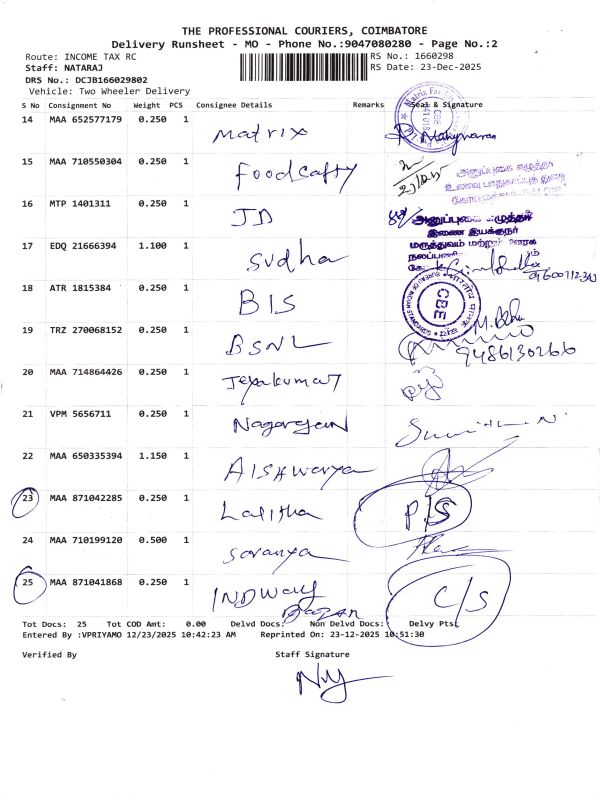 THE PROFESSIONAL COURIERS, COIMBATORE
Delivery Runsheet - MO - Phone No.:9047080280 - Page No.:2
Route: INCOME TAX RC RS No.: 1660298
Staff: NATARAJ RS Date: 23-Dec-2025
DRS No.: DCJB166029802
Vehicle: Two Wheeler Delivery
S No Consignment No Weight PCS Consignee Details Remarks Seal & Signature
14 MAA 652577179 0.250 1 Matrix
15 MAA 710550304 0.250 1 Foodcafty
16 MTP 1401311 0.250 1 JD
அனுப்புகை எழுத்தர்
இணை இயக்குநர்
மருத்துவம் மற்றும் ஊரக
17 EDQ 21666394 1.100 1 Sudha
18 ATR 1815384 0.250 1 BIS CBE
19 TRZ 270068152 0.250 1 BSNL
9486130266
20 MAA 714864426 0.250 1 Jeyakumar
21 VPM 5656711 0.250 1 Nagarajan
22 MAA 650335394 1.150 1 AIShwarya
23 MAA 871042285 0.250 1 Lalitha P/S
24 MAA 710199120 0.500 1 Saranya
25 MAA 871041868 0.250 1 INDWay C/S
BAZAR
Tot Docs: 25 Tot COD Amt: 0.00 Delvd Docs: Non Delvd Docs: Delvy Pts:
Entered By :VPRIYAMO 12/23/2025 10:42:23 AM Reprinted On: 23-12-2025 10:51:30
Verified By Staff Signature